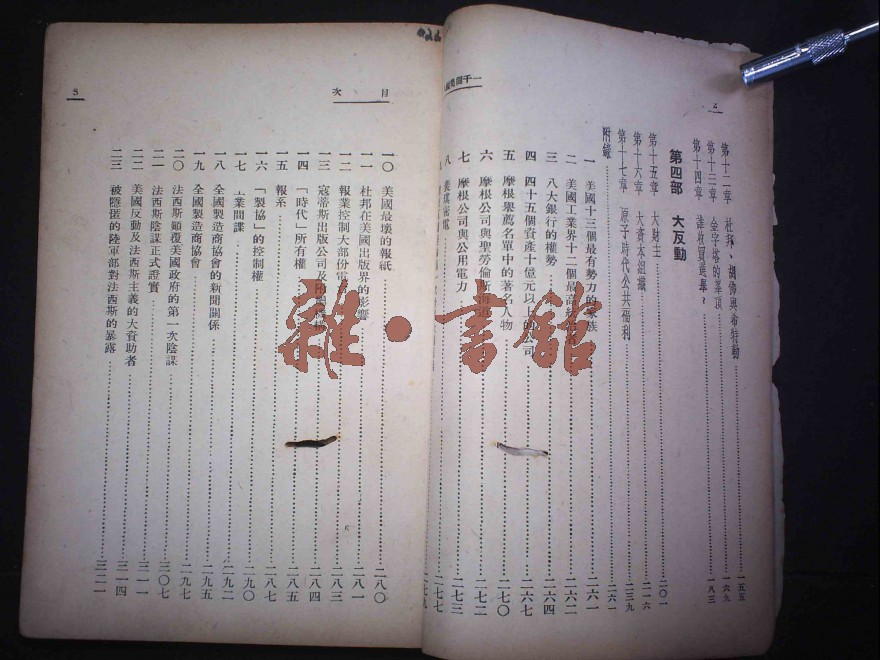 第十二章 杜邦、胡佛與希特勒……一五五
第十三章 金字塔的峯頂……一六九
第十四章 誰收買選舉？……一八三
第四部 大反動
第十五章 大財主……二〇一
第十六章 大資本組織……二一六
第十七章 原子時代公共福利……二三九
附錄……二六一
一 美國十三個最有勢力的家族……二六一
二 美國工業界十二個最高統治……二六二
三 八大銀行的權勢……二六四
四 四十五個資產十億元以上的公司……二六七
五 摩根舉薦名單中的著名人物……二七〇
六 摩根公司與聖勞倫斯海道……二七二
七 摩根公司與公用電力……二七三
八……二七七
二七九
目次
3
一〇 美國最壞的報紙……二八〇
一一 杜邦在美國出版界的影響……二八一
一二 報業控制大部份電……二八三
一三 寇蒂斯出版公司及……二八四
一四 「時代」所有權……二八五
一五 報系……二八七
一六 「製協」的控制權……二九〇
一七 工業間諜……二九二
一八 全國製造商協會的新聞關係……二九五
一九 全國製造商協會……二九七
二〇 法西斯顛覆美國政府的第一次陰謀……三〇七
二一 法西斯陰謀正式證實……三一一
二二 美國反動及法西斯主義的大資助者……三一四
二三 被隱匿的陸軍部對法西斯的暴露……三二一
雜·書館